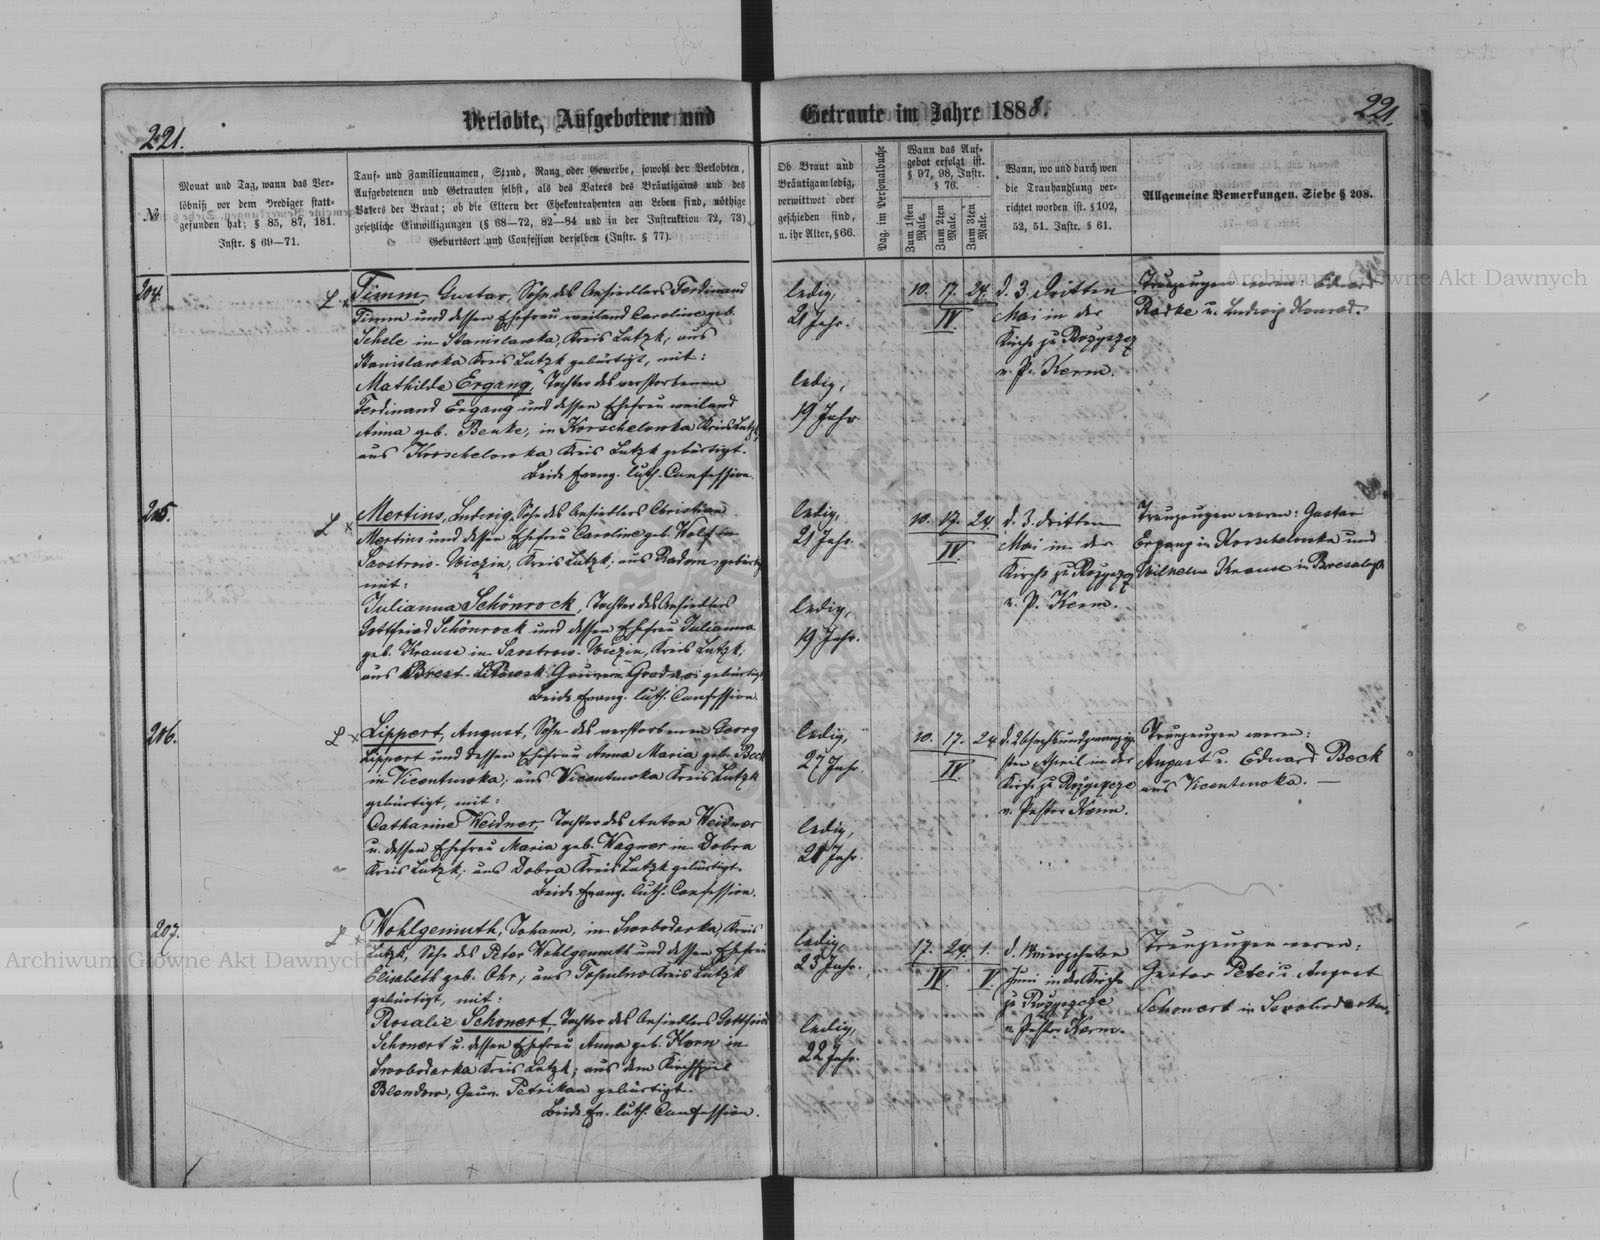 Verlobte, Aufgebotene und Getraute im Jahre 1888.
221.
221.
№
Monat und Tag, wann das Ver-
löbniß vor dem Prediger statt-
gefunden hat; § 85, 87, 181.
Instr. § 69—71.
Tauf- und Familiennamen, Stand, Rang oder Gewerbe, sowohl der Verlobten,
Aufgebotenen und Getrauten selbst, als des Vaters des Bräutigams und des
Vaters der Braut; ob die Eltern der Ehekontrahenten am Leben sind, nöthige
gesetzliche Einwilligungen (§ 68—72, 82—84 und in der Instruktion 72, 73)
Geburtsort und Confession derselben (Instr. § 77).
Ob Braut und
Bräutigam ledig,
verwittwet oder
geschieden sind,
u. ihr Alter, § 66.
Pag. im Personalbuche
Wann das Auf-
gebot erfolgt ist.
§ 97, 98, Instr.
§ 76.
Zum 1sten Male.
Zum 2ten Male.
Zum 3ten Male.
Wann, wo und durch wen
die Trauhandlung ver-
richtet worden ist. § 102,
52, 51. Instr. § 61.
Allgemeine Bemerkungen. Siehe § 208.
204.
L x
Timm, Gustav, Sohn des Ansiedlers Ferdinand
Timm und dessen Ehefrau weiland Caroline geb.
Schele in Stanislawka, Kreis Lutzk; aus
Stanislawka Kreis Lutzk gebürtigt, mit:
Mathilde Ergang, Tochter des verstorbenen
Ferdinand Ergang und dessen Ehefrau weiland
Anna geb. Benke, in Korschelowka Kreis Lutzk,
aus Korschelowka Kreis Lutzk gebürtigt.
Beide Evang. luth. Confession.
ledig,
21 Jahr.
ledig,
19 Jahr
10. 17. 24.
IV
d. 3. dritten
Mai in der
Kirche zu Rozyszcz
v. P. Kerm.
Trauzeugen waren: Eduard
Radke u. Ludwig Konrad.
205.
L x
Mertins, Ludwig, Sohn des Ansiedlers Christian
Mertins und dessen Ehefrau Caroline geb. Wolf in
Kreis Lutzk; aus Radom gebürtig
mit:
Julianna Schönrock, Tochter des Ansiedlers
Gottfried Schönrock und dessen Ehefrau Julianna
geb. Krause in Kreis Lutzk;
aus Brest-Litowsk Gouvern. Grodno gebürtigt
Beide Evang. luth. Confession.
ledig,
21 Jahr.
ledig,
19 Jahr.
10. 17. 24.
IV
d. 3. dritten
Mai in der
Kirche zu Rozyszcz
v. P. Kerm.
Trauzeugen waren: Gustav
Ergang in Korschelowka und
Wilhelm Krause in
206.
L x
Lippert, August, Sohn des verstorbenen Georg
Lippert und dessen Ehefrau Anna Maria geb. Beck
in Vicentuwka; aus Vicentuwka Kreis Lutzk
gebürtigt, mit:
Catharine Weidner, Tochter des Anton Weidner
u. dessen Ehefrau Maria geb. Wagner in Dobra
Kreis Lutzk; aus Dobra Kreis Lutzk gebürtigt.
Beide Evang. luth. Confession.
ledig,
27 Jahr.
ledig,
Jahr.
10. 17. 24
IV
d. 26 sechsundzwanzig-
sten April in der
Kirche zu Rozyszcze
v. Pastor Kerm.
Trauzeugen waren:
August u. Eduard Beck
aus Vicentuwka. —
207.
L x
Wohlgemuth, Johann, in Swobodarka, Kreis
Lutzk, Sohn des Peter Wohlgemuth und dessen Ehefrau
Elisabeth geb. Ohr; aus Topulno Kreis Lutzk
gebürtigt, mit:
Rosalie Schonert, Tochter des Ansiedlers Gottfried
Schonert u. dessen Ehefrau Anna geb. Horn in
Swobodarka Kreis Lutzk; aus dem Kirchspiel
Blendow, Gouv. Petrikau gebürtigt.
Beide Ev. luth. Confession.
ledig,
23 Jahr.
ledig,
22 Jahr.
17. 24. 1.
IV. V.
d. vierzehnten
Juni in der Kirche
zu Rozyszcze
v. Pastor Kerm.
Trauzeugen waren:
Gustav Peter u. August
Schonert in Swobodarka.
Archiwum Główne Akt Dawnych
Archiwum Główne Akt Dawnych